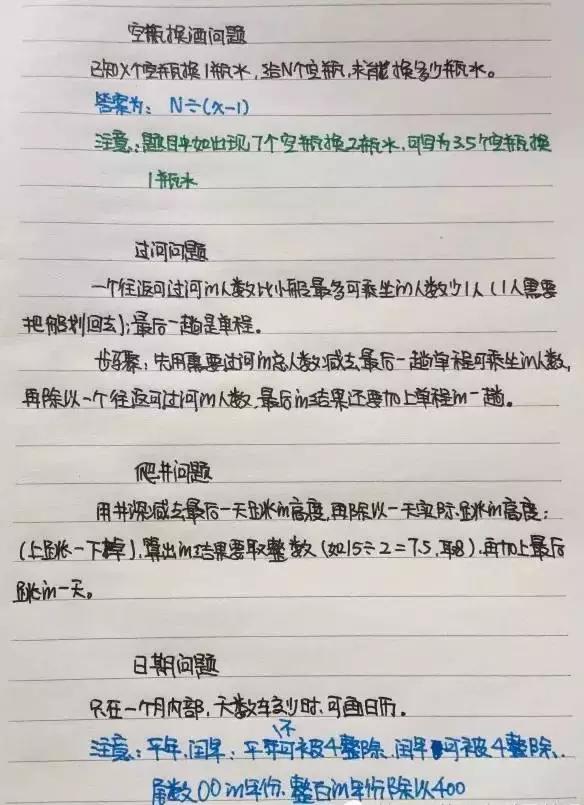 空瓶换酒问题
已知X个空瓶换1瓶水，给N个空瓶，求能换多少瓶水。
答案为：N÷(x-1)
注意：题目中如出现7个空瓶换2瓶水，可写为3.5个空瓶换
1瓶水
过河问题
一个往返可过河的人数比小船最多可乘坐的人数少1人（1人需要
把船划回去）；最后一趟是单程。
步骤：先用需要过河的总人数减去最后一趟单程可乘坐的人数，
再除以一个往返可过河的人数，最后的结果还要加上单程的一趟。
爬井问题
用井深减去最后一天跳的高度，再除以一天实际跳的高度；
（上跳－下掉），算出的结果要取整数（如15÷2=7.5，取8），再加上最后
跳的一天。
日期问题
只在一个月内部，天数较少时，可画日历。
注意：平年，闰年：平年不可被4整除，闰年可被4整除、
尾数00的年份，整百的年份除以400